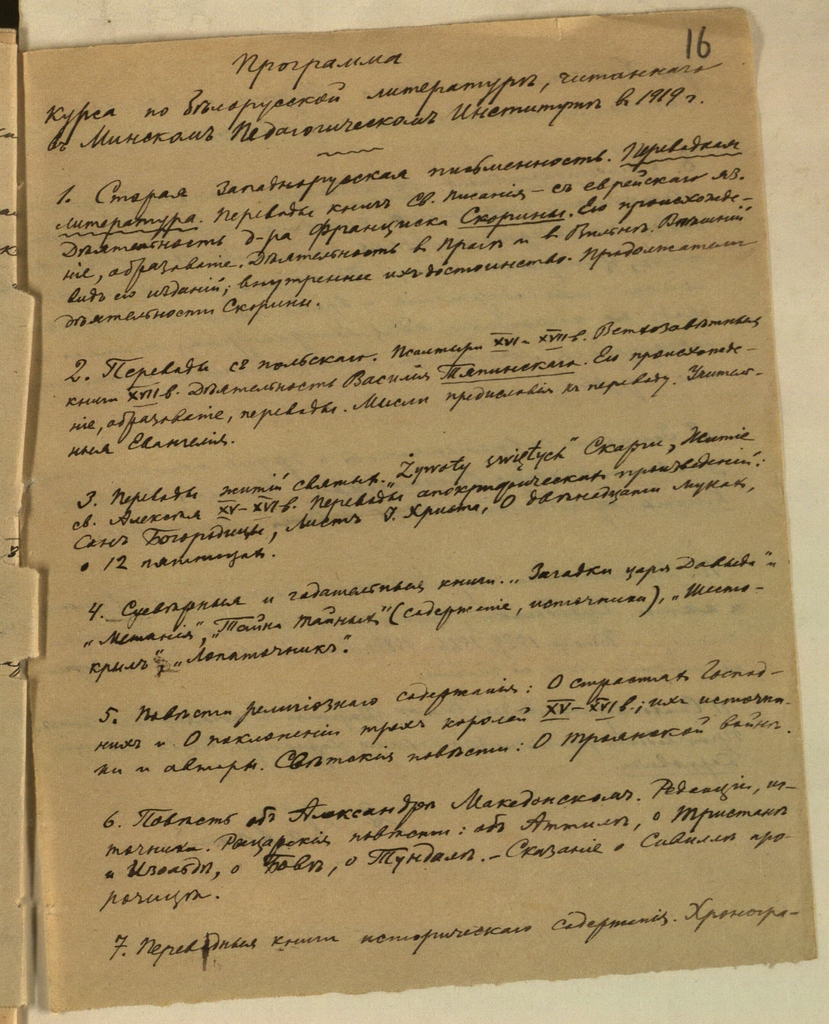 16
Программа
курса по бѣлорусской литературѣ, читаннаго
въ Минскомъ Педагогическомъ Институтѣ в 1919 г.
1. Старая западнорусская письменность. Переводная
литература. Переводы книгъ Св. Писанія – съ еврейскаго яз.
Дѣятельность д-ра Франциска Скорины. Его происхожде-
ніе, образованіе. Дѣятельность в Прагѣ и в Вильнѣ. Внѣшній
видъ его изданій; внутреннее ихъ достоинство. Продолжатели
дѣятельности Скорины.
2. Переводы съ польскаго. Псалтыри XVI – XVII в. Ветхозавѣтныя
книги XVII в. Дѣятельность Василія Тяпинскаго. Его происхожде-
ніе, образованіе, переводы. Мысли предисловія къ переводу. Учитель-
ныя Евангелія.
3. Переводы житій святых. „Żywoty świętych" Скарги, Житіе
св. Алексѣя XV–XVI в. Переводы апокрифическихъ произведеній:
Сонъ Богородицы, Листъ І. Христа, О двѣнадцати мукахъ,
о 12 пятницахъ.
4. Суевѣрныя и гадательныя книги. „Загадки царя Давыда" и
„Метанія", „Тайна тайныхъ" (содержаніе, источники), „Шесто-
крылъ", „Лопаточникъ".
5. Повѣсти религіознаго содержанія: О страстяхъ Господ-
нихъ и О поклоненіи трехъ королей XV–XVI в.; ихъ источни-
ки и авторы. Свѣтскія повѣсти: О троянской войнѣ.
6. Повѣсть объ Александрѣ Македонскомъ. Редакціи, ис-
точники. Рыцарскія повѣсти: объ Аттилѣ, о Тристанѣ
и Изольдѣ, о Бовѣ, о Тундалѣ. – Сказаніе о Сивиллѣ про-
рочицѣ.
7. Переводныя книги историческаго содержанія. Хроногра-